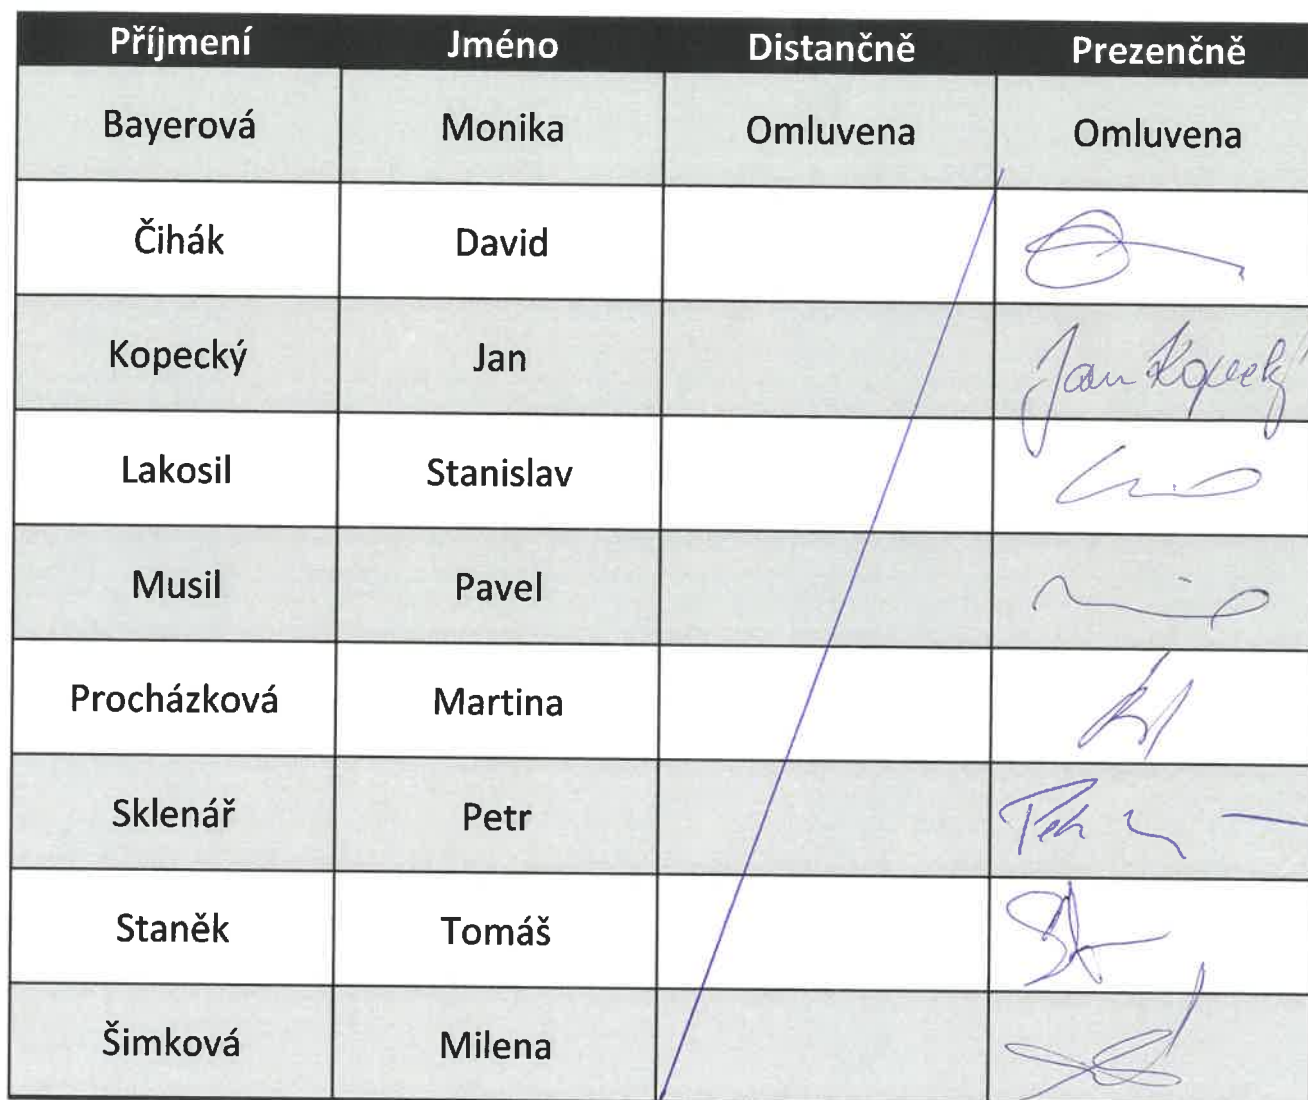 Příjmení Jméno Distančně Prezenčně
Bayerová Monika Omluvena Omluvena
Čihák David
Kopecký Jan Jan Kopecký
Lakosil Stanislav
Musil Pavel
Procházková Martina
Sklenář Petr Petr
Staněk Tomáš
Šimková Milena